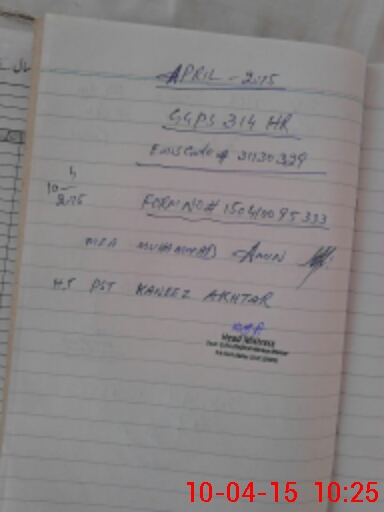 APRIL - 2015
GGPS 314 HR
EMIS Code # 31130329
10-4-2015
FORM NO # 150410095333
MEA MUHAMMAD AMIN
HT PST KANEEZ AKHTAR
Head Mistress
10-04-15 10:25